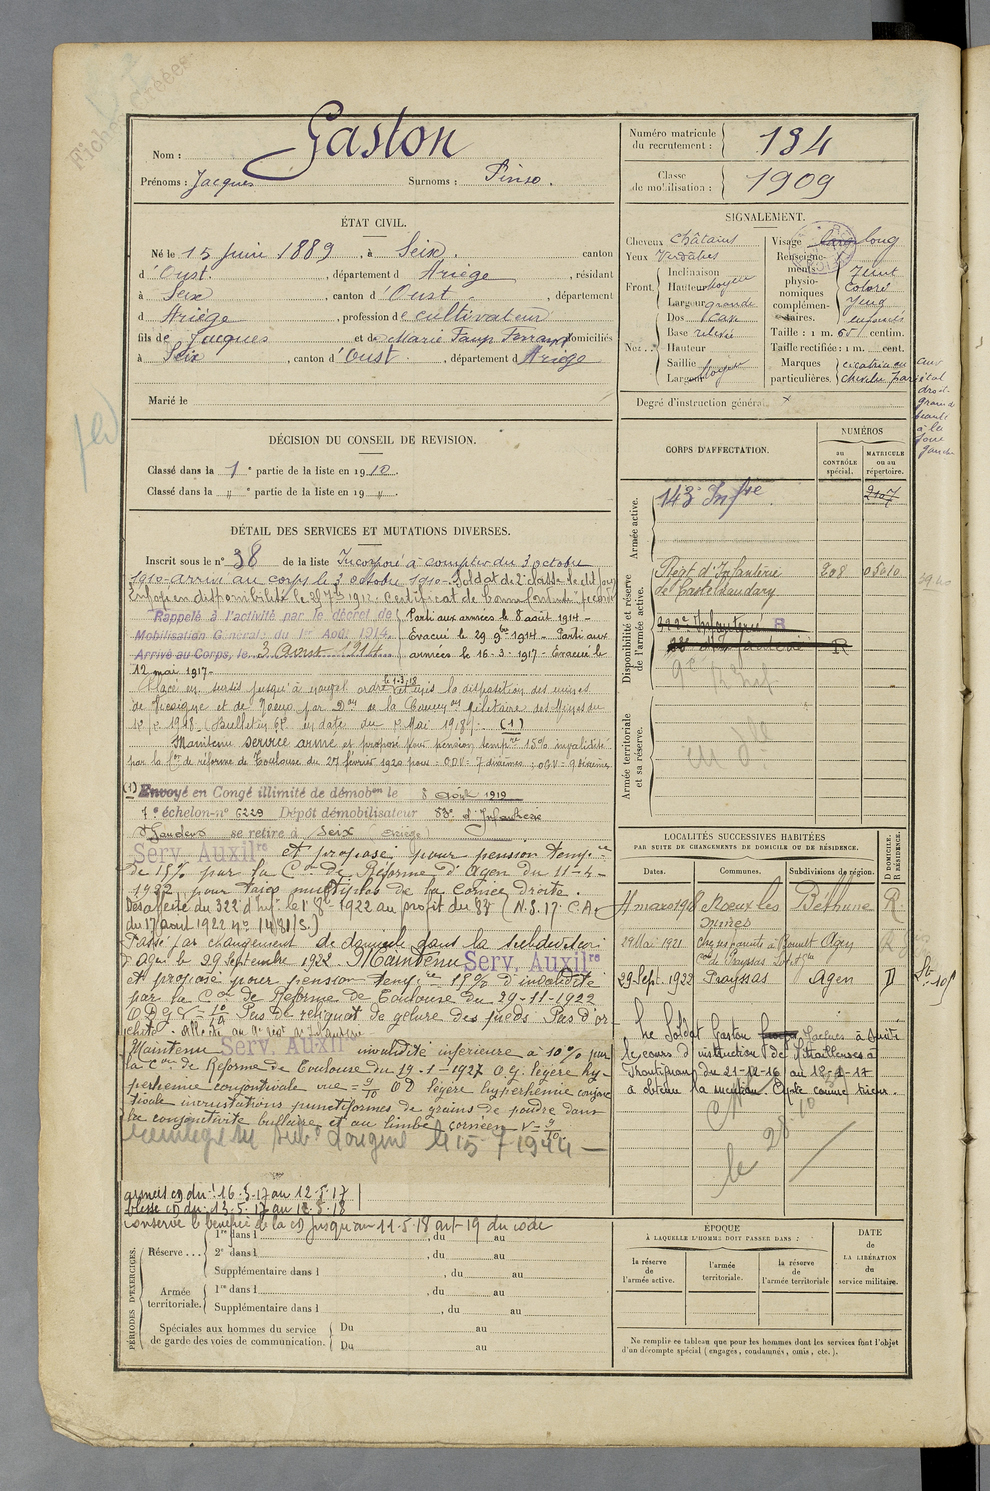 Fiches Créées
Nom : Gaston
Prénoms : Jacques Surnoms : Pinso.
Numéro matricule du recrutement : 134
Classe de mobilisation : 1909
ÉTAT CIVIL.
Né le 15 Juin 1889, à Seix, canton
d'Oust, département d Ariège, résidant
à Seix, canton d'Oust, département
d Ariège, profession de cultivateur
fils de Jacques et de Marie Faup Ferrant, domiciliés
à Seix, canton d'Oust, département d Ariège
Marié le
SIGNALEMENT.
Cheveux Châtains
Yeux Verdâtres
Front.
Inclinaison
Hauteur Moyen
Largeur grande
Nez
Dos Cave
Base relevé
Hauteur
Saillie
Largeur Moyen
Visage long
Renseignements physionomiques complémentaires.
Teint
Coloré
Yeux
enfoncés
Taille : 1 m. 65 centim.
Taille rectifiée : 1 m. cent.
Marques particulières. cicatrice au
chevelu pariétal
droit
grain de
beauté
à la
joue
gauche
Degré d'instruction générale. x
DÉCISION DU CONSEIL DE REVISION.
Classé dans la 1e partie de la liste en 1910.
Classé dans la " e partie de la liste en 19 "
CORPS D'AFFECTATION.
NUMÉROS
au CONTRÔLE spécial.
MATRICULE ou au répertoire.
Armée active.
143e Infrie 2107
Disponibilité et réserve de l'armée active.
Régt d'Infanterie 208 05010
de Castelnaudary
322e Infanterie R
88e d'Infanterie R
9e R Inf
Armée territoriale et sa réserve.
DÉTAIL DES SERVICES ET MUTATIONS DIVERSES.
Inscrit sous le n° 38 de la liste Incorporé à compter du 3 octobre
1910. Arrivé au corps le 3 octobre 1910. Soldat de 2e classe le dit jour
Envoyé en disponibilité le 25 7bre 1912. Certificat de bonne conduite "accordé"
Rappelé à l'activité par le décret de
Mobilisation Générale du 1er Août 1914
Arrivé au Corps, le 3 Aout 1914
Parti aux armées le 8 août 1914 -
Evacué le 29 9bre 1914 - Parti aux
armées le 16-3-1917 - Evacué le
12 mai 1917 -
Placé en sursis jusqu'à nouvel ordre le 1.3.18 et mis à la disposition des mines
de Drocourt et de Nœux par Don de la Common Militaire des Mines du
(Bulletin 68 en date du 1er Mai 1918) (1)
Maintenu service armé et proposé pour pension tempre 15% invalidité
par la Con de réforme de Toulouse du 27 février 1920 pour : ODV = 7 dixièmes ; OGV = 9 dixièmes
(1) Envoyé en Congé illimité de démobon le 8 Août 1919
7e échelon-n° 6229 Dépôt démobilisateur 88e d'Infanterie
St Gaudens se retire à Seix (Ariège)
Serv. Auxilre et proposé pour pension tempre
de 15% par la Con de Réforme d'Agen du 11-4-
1922 pour taies multiples de la Cornée droite.
Désaffecté du 322e d'Inf. le 1er 8bre 1922 au profit du 88e (N.S. 17e C.A.
du 17 août 1922 n° 1481/S.)
Passé par changement de domicile dans la subdivision
d'Agen le 29 Septembre 1922. Maintenu Serv. Auxilre
et proposé pour pension tempre 15% d'invalidité
par la Con de Réforme de Toulouse du 29-11-1922
O D G V = 10/10 Pas de reliquat de gelure des pieds. Pas d'or-
Maintenu Serv. Auxilre invalidité inférieure à 10% par
la Con de Réforme de Toulouse du 19-1-1927 O.G. légère hy-
perhémie conjonctivale vue = 9/10 OD légère hyperhémie conjonc-
tivale incrustations punctiformes de grains de poudre dans
la conjonctivite bulbaire et au limbe cornéen V = 9/10.
le 15-7-1944 -
blessé 13.5.17
conserve le bénéfice de la jusqu'au 11.5.18 art-19 du code
LOCALITÉS SUCCESSIVES HABITÉES
PAR SUITE DE CHANGEMENTS DE DOMICILE OU DE RÉSIDENCE.
Dates. Communes. Subdivisions de région. D DOMICILE. R RÉSIDENCE.
11 mars 1918 Nœux les Mines Béthune R.
29 Mai 1921 Agen R
29 Sept. 1922 Prayssas Agen D
Le Soldat Gaston Jacques à suivi
le cours d'instruction de Mitrailleuses à
Frontignan du 21-12-16 au 12-1-17
à obtenu la mention.
le 28.10
PÉRIODES D'EXERCICES.
Réserve...
1re dans l , du au
2e dans l , du au
Supplémentaire dans l , du au
Armée territoriale.
1re dans l , du au
Supplémentaire dans l , du au
Spéciales aux hommes du service de garde des voies de communication.
Du au
Du au
ÉPOQUE
À LAQUELLE L'HOMME DOIT PASSER DANS :
la réserve de l'armée active.
l'armée territoriale.
la réserve de l'armée territoriale
DATE de LA LIBÉRATION du service militaire.
Ne remplir ce tableau que pour les hommes dont les services font l'objet
d'un décompte spécial (engagés, condamnés, omis, etc.).